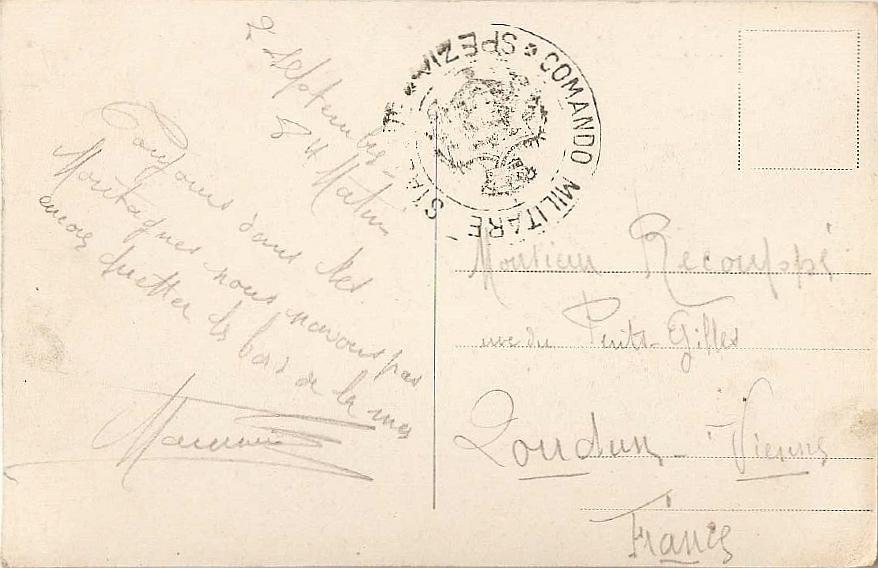 2 Septembre
8 H Matin
Toujours dans les
Montagnes nous navons pas
encore quetter les bors de la mer
Maurice
COMANDO MILITARE STAZ
SPEZIA
Monsieur Recouppé
rue du Puits-Gilles
Loudun - Vienne
France